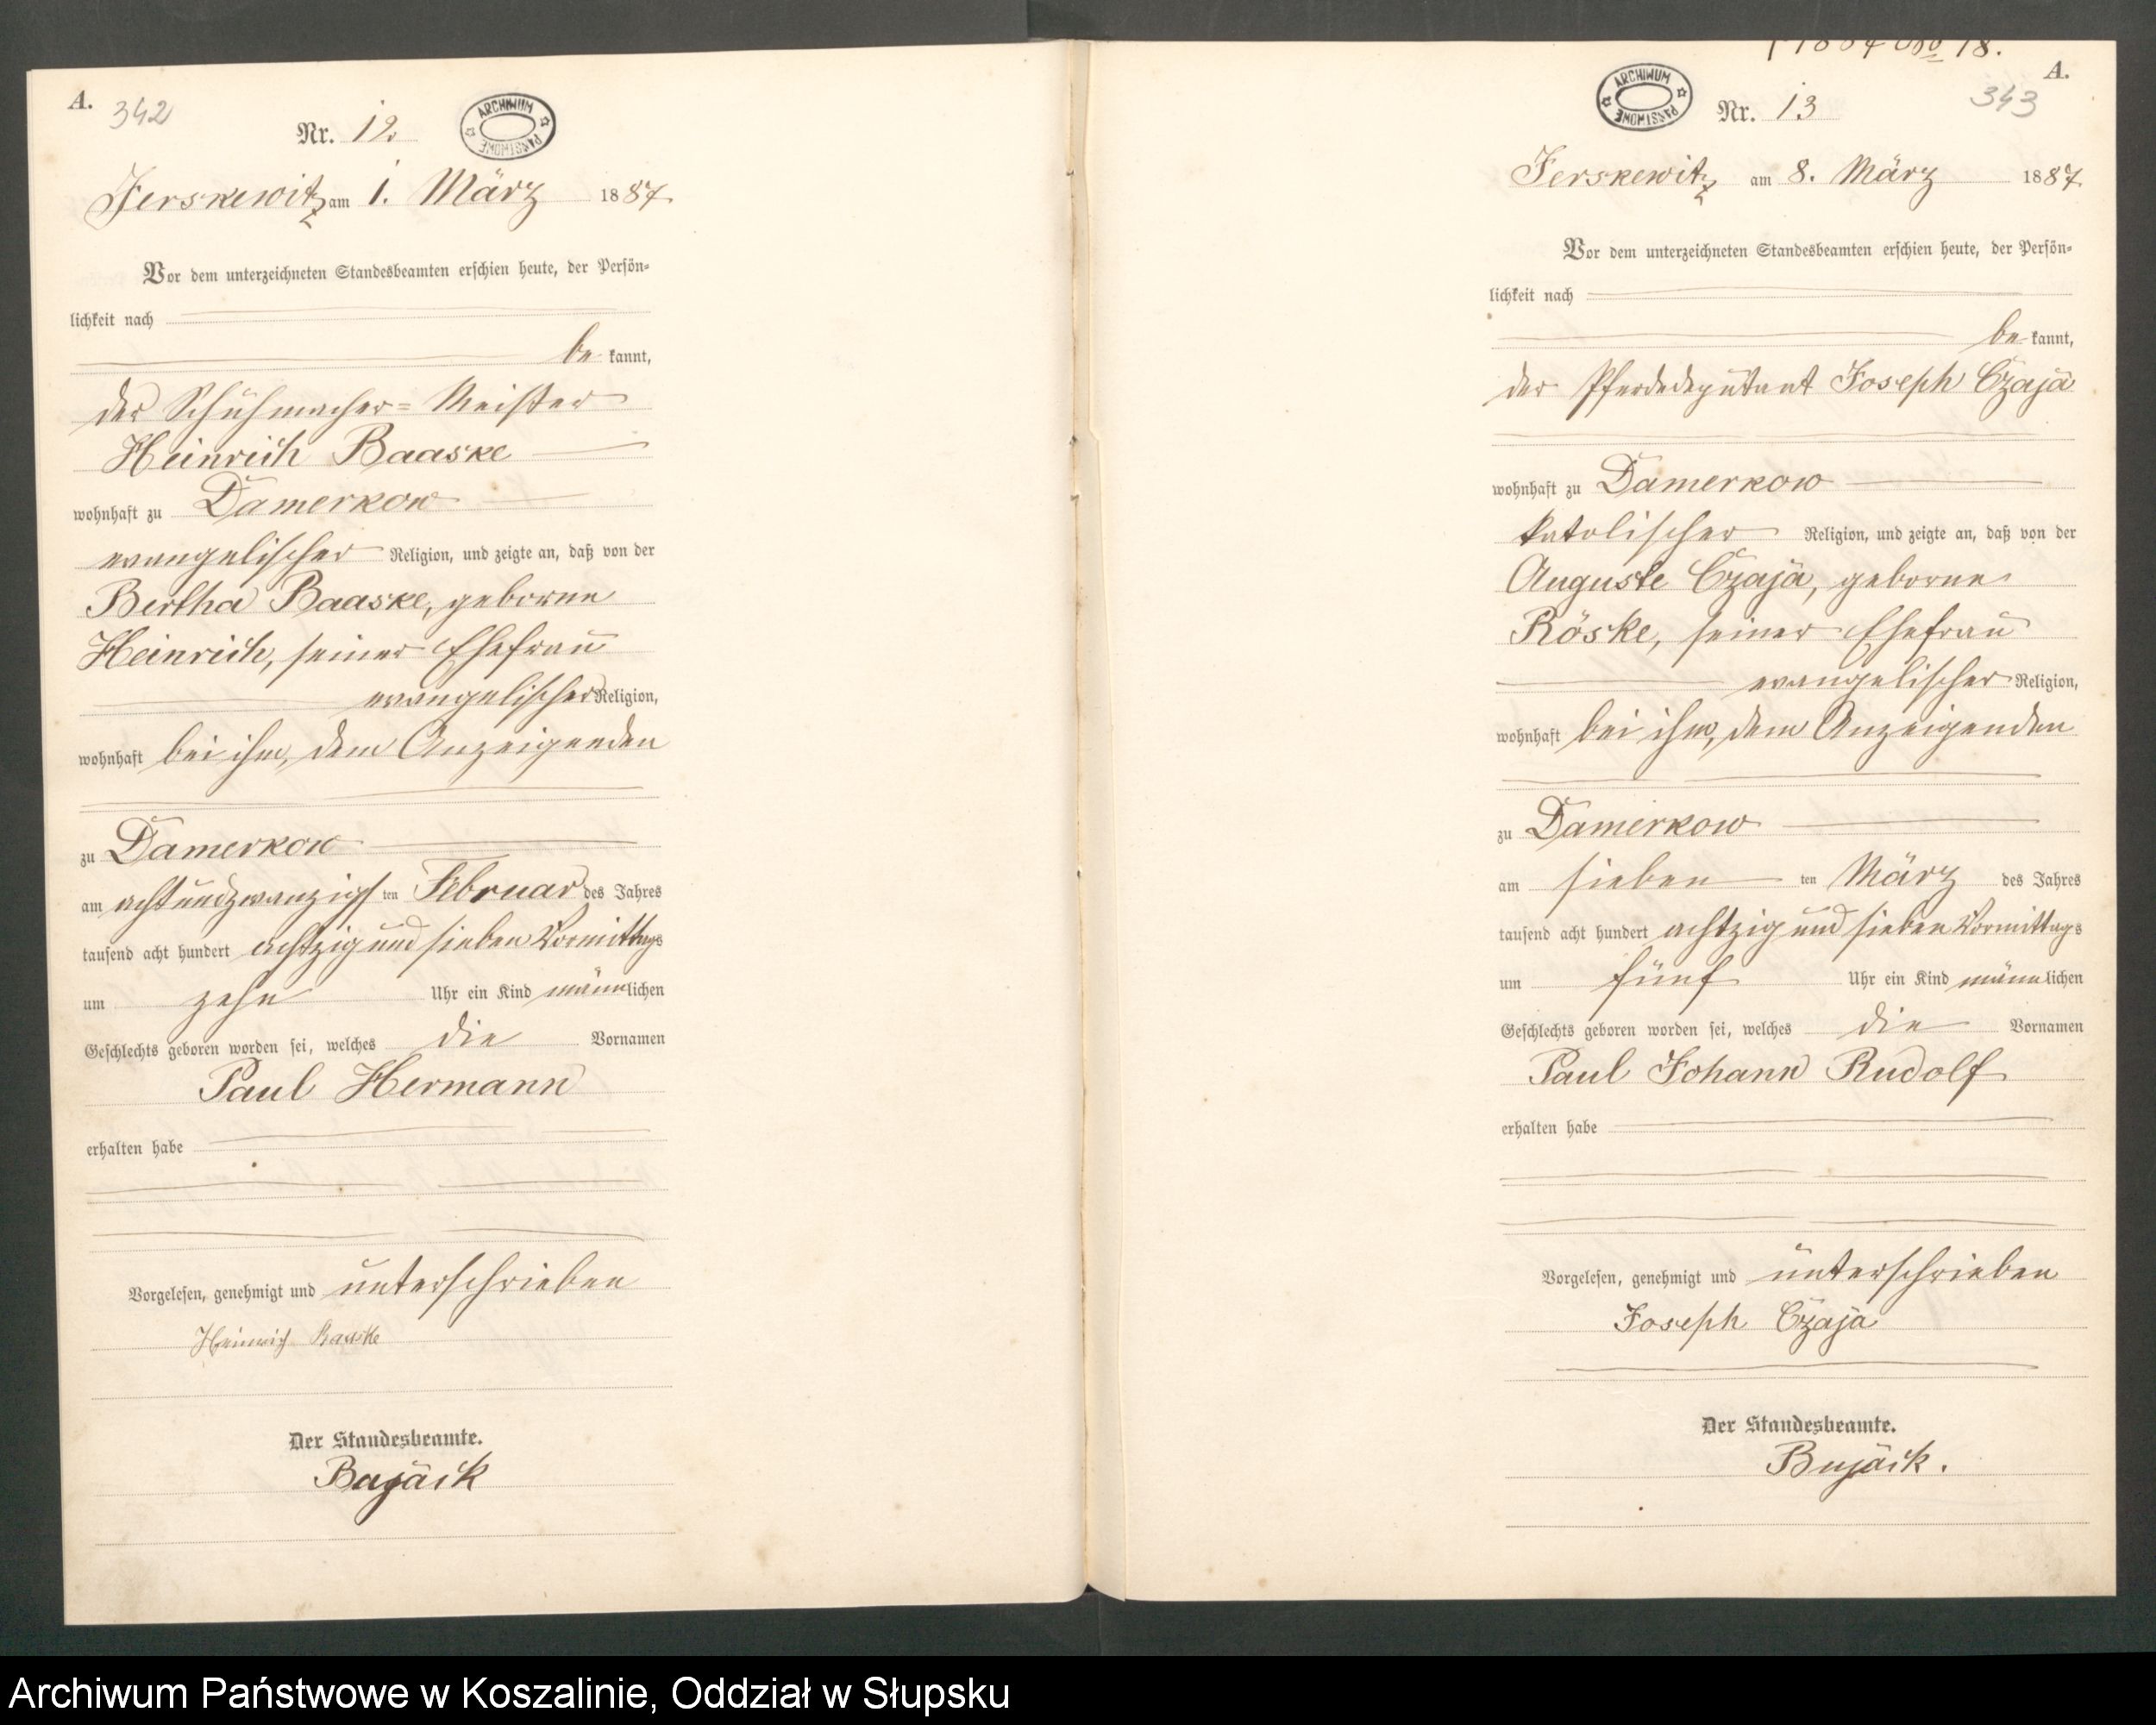 A.
342
Nr. 12.
ARCHIWUM PAŃSTWOWE
Jerskewitz am 1. März 1887.
Vor dem unterzeichneten Standesbeamten erschien heute, der Persön-
lichkeit nach
be kannt,
der Schuhmacher-Meister
Heinrich Baaske
wohnhaft zu Damerkow
evangelischer Religion, und zeigte an, daß von der
Bertha Baaske, geborne
Heinrich, seiner Ehefrau
evangelischer Religion,
wohnhaft bei ihm, dem Anzeigenden
zu Damerkow
am achtundzwanzigs ten Februar des Jahres
tausend acht hundert achtzig und sieben Vormittags
um zehn Uhr ein Kind männlichen
Geschlechts geboren worden sei, welches die Vornamen
Paul Hermann
erhalten habe
Vorgelesen, genehmigt und unterschrieben
Heinrich Baaske
Der Standesbeamte.
Bujack
18.
A.
343
ARCHIWUM PAŃSTWOWE
Nr. 13
Jerskewitz am 8. März 1887.
Vor dem unterzeichneten Standesbeamten erschien heute, der Persön-
lichkeit nach
be kannt,
der Pferdedeputant Joseph Czaja
wohnhaft zu Damerkow
katolischer Religion, und zeigte an, daß von der
Auguste Czaja, geborne
Röske, seiner Ehefrau
evangelischer Religion,
wohnhaft bei ihm, dem Anzeigenden
zu Damerkow
am sieben ten März des Jahres
tausend acht hundert achtzig und sieben Vormittags
um fünf Uhr ein Kind männlichen
Geschlechts geboren worden sei, welches die Vornamen
Paul Johann Rudolf
erhalten habe
Vorgelesen, genehmigt und unterschrieben
Joseph Czaja
Der Standesbeamte.
Bujack.
Archiwum Państwowe w Koszalinie, Oddział w Słupsku